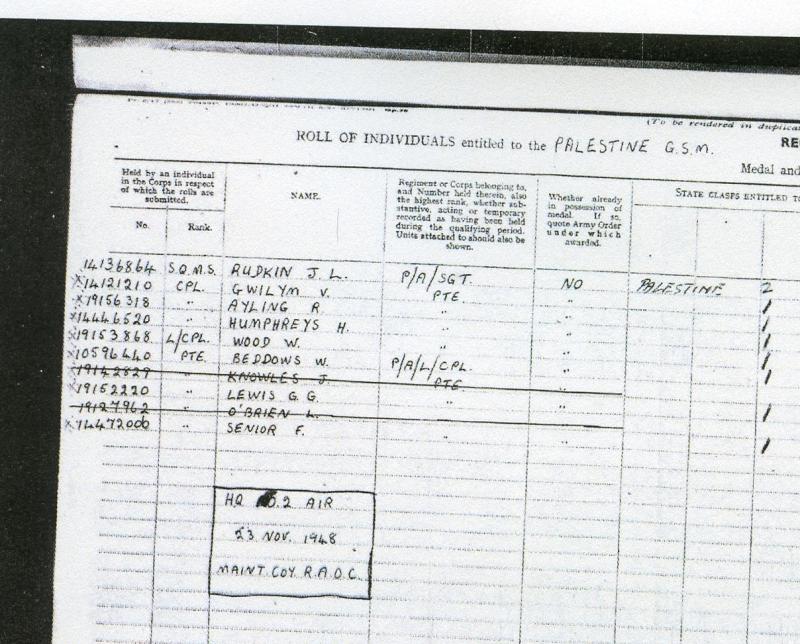 (To be rendered in duplica
ROLL OF INDIVIDUALS entitled to the PALESTINE G.S.M.
RE
Medal and
Held by an individual in the Corps in respect of which the rolls are submitted.
No. Rank.
NAME.
Regiment or Corps belonging to, and Number held therein, also the highest rank, whether substantive, acting or temporary recorded as having been held during the qualifying period. Units attached to should also be shown.
Whether already in possession of medal. If so, quote Army Order under which awarded.
STATE CLASPS ENTITLED TO
14136864 S.Q.M.S. RUDKIN J. L. P/A/SGT. NO PALESTINE 2
x14121210 CPL. GWILYM V. PTE. " /
x19156318 " AYLING R. " " /
x14446520 " HUMPHREYS H. " " /
x19153868 L/CPL. WOOD W. " " /
x10596440 PTE. BEDDOWS W. P/A/L/CPL. " /
x19142829 " KNOWLES J. PTE.
x19152220 " LEWIS G. G. " " /
19127962 " O'BRIEN L.
x14472006 " SENIOR F. " " /
HQ NO. 2 AIR
23 NOV. 1948
MAINT. COY. R.A.O.C.